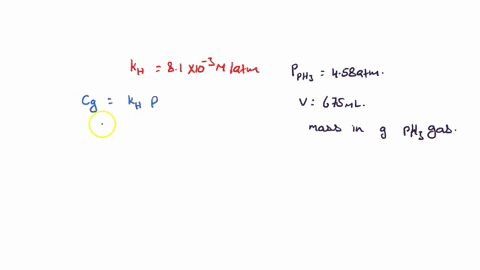 k_H = 8.1 x10^-3 M/atm
P_PH3 = 4.58atm.
Cg = k_H P
V = 675mL.
mass in g PH3 gas.